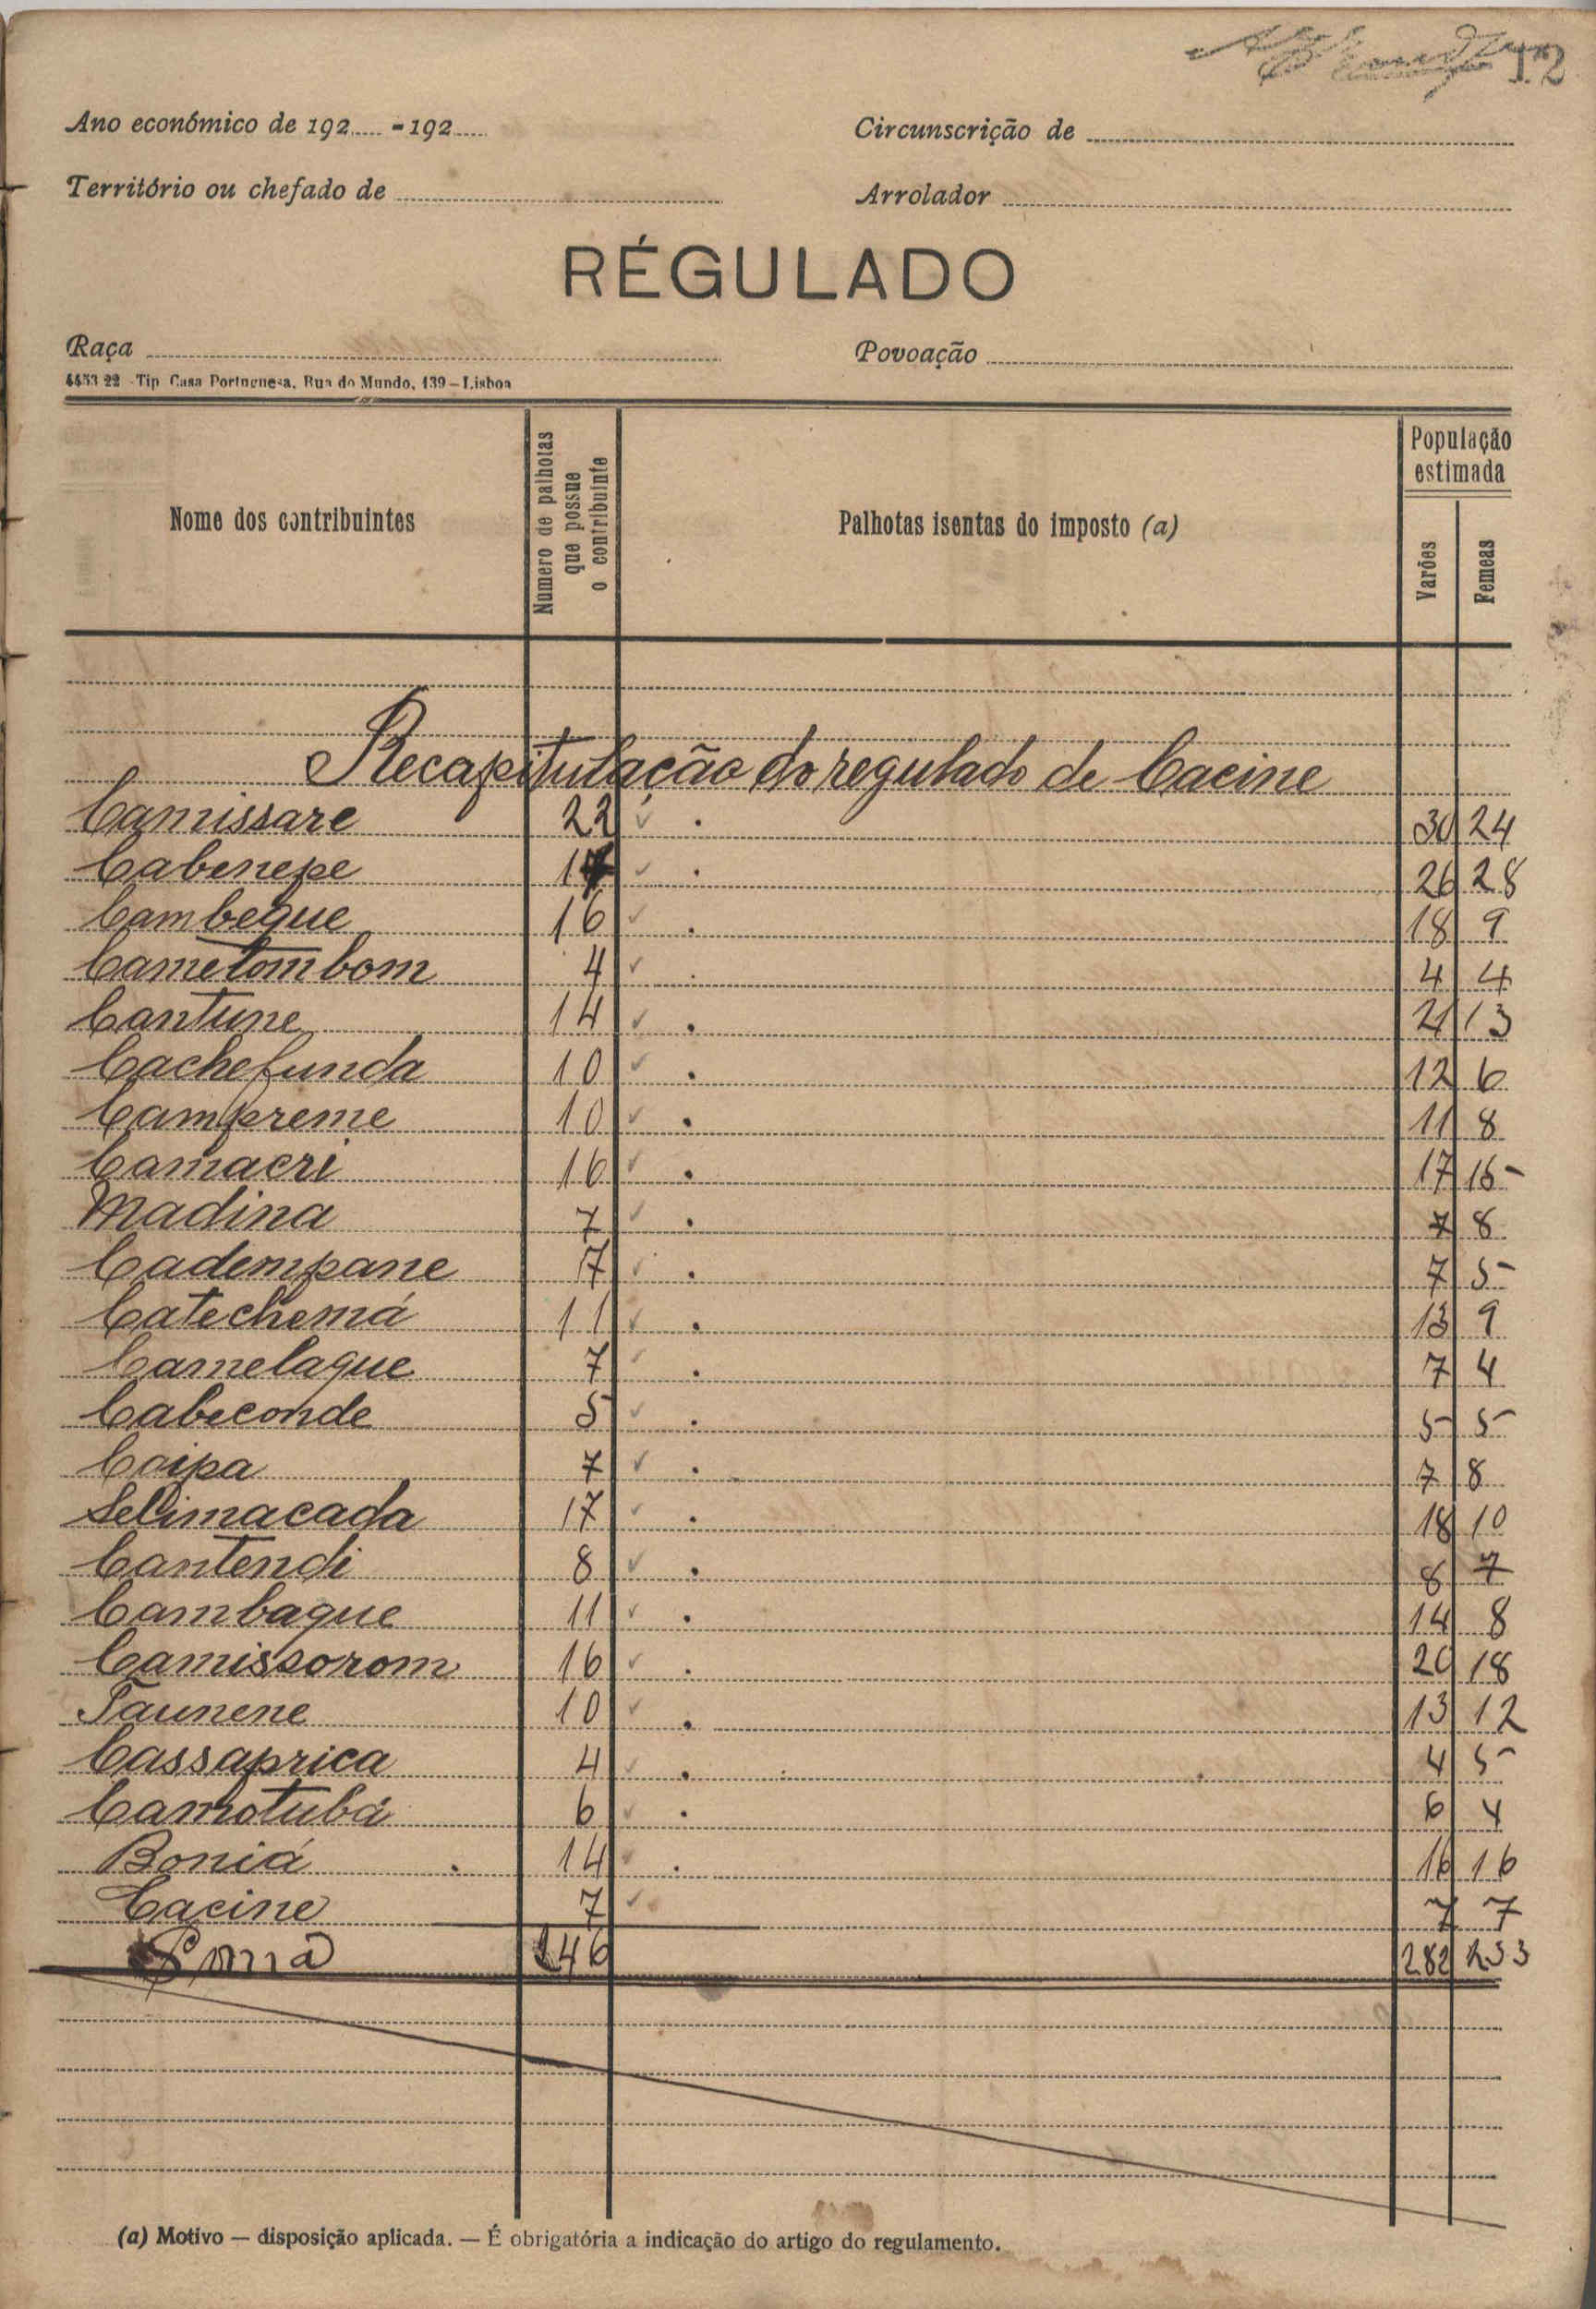 12
Ano económico de 192..... - 192..... Circunscrição de
Território ou chefado de Arrolador
RÉGULADO
Raça Povoação
4453 22 - Tip Casa Portuguesa, Rua do Mundo, 139 - Lisboa
Nome dos contribuintes Número de palhotas que possue o contribuinte Palhotas isentas do imposto (a) População estimada Varões Femeas
Recapitulação do regulado de Cacine
Camissare 22 ✓ . 30 24
Cabenepe ✓ . 26 28
Cambeque 16 ✓ . 18 9
Cametombom 4 ✓ . 4 4
Cantune 14 ✓ . 21 13
Cachefunda 10 ✓ . 12 6
Campreme 10 ✓ . 11 8
Camacri 16 ✓ . 17 15
Madina 7 ✓ . 7 8
Cadempane 7 ✓ . 7 5
Catechemá 11 ✓ . 13 9
Camelaque 7 ✓ . 7 4
Cabeconde 5 ✓ . 5 5
Coipa 7 ✓ . 7 8
Selimacada 17 ✓ . 18 10
Cantendi 8 ✓ . 8 7
Cambaque 11 ✓ . 14 8
Camissorom 16 ✓ . 20 18
Taunene 10 ✓ . 13 12
Cassaprica 4 ✓ . 4 5
Camotubá 6 ✓ . 6 4
Boniá 14 ✓ . 16 16
Cacine 7 ✓ 7 7
Soma 246 282 233
(a) Motivo — disposição aplicada. — É obrigatória a indicação do artigo do regulamento.